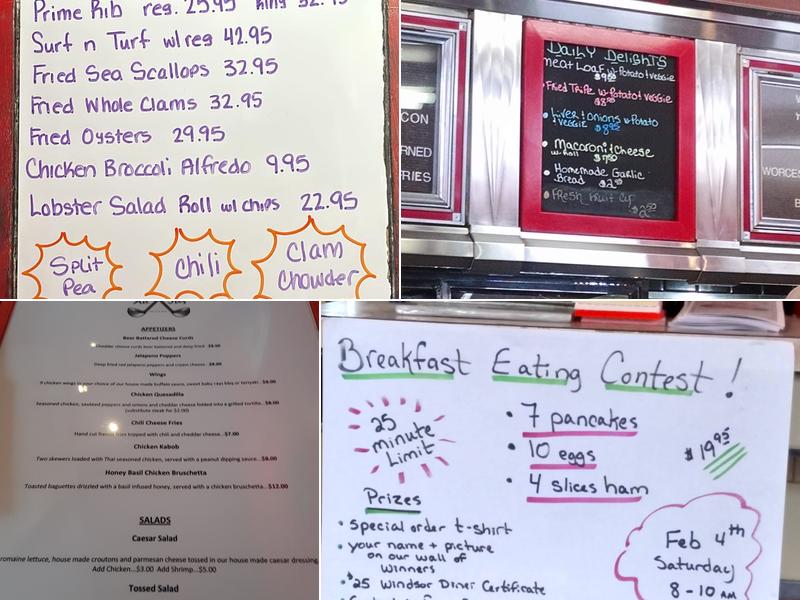 Prime Rib reg. 25.95 King 32.95
Surf n Turf w/reg 42.95
Fried Sea Scallops 32.95
Fried Whole Clams 32.95
Fried Oysters 29.95
Chicken Broccoli Alfredo 9.95
Lobster Salad Roll w/ chips 22.95
Split Pea
Chili
Clam Chowder
CON
RNED
RIES
DAILY DELIGHTS
meat Loaf w-Potato & veggie
Fried Tripe w-Potato & veggie
Liver & onions w-Potato
& veggie
Macaroni & Cheese
w-Roll
Homemade Garlic
Bread
Fresh Fruit Cup
$2.50
WORCES
B
APPETIZERS
Beer Battered Cheese Curds
Cheddar cheese curds beer battered and deep fried
Jalapeno Poppers
Deep fried red jalapeno peppers and cream cheese
Wings
Chicken Quesadilla
Seasoned chicken, sauteed peppers and onions and cheddar cheese folded into a grilled tortilla...$8.00
(substitute steak for $2.00)
Chili Cheese Fries
Hand cut fries topped with chili and cheddar cheese...$7.00
Chicken Kabob
Two skewers loaded with Thai seasoned chicken, served with a peanut dipping sauce...$8.00
Honey Basil Chicken Bruschetta
Toasted baguettes drizzled with a basil infused honey, served with a chicken bruschetta...$12.00
SALADS
Caesar Salad
romaine lettuce, house made croutons and parmesan cheese tossed in our house made caesar dressing
Add Chicken...$3.00 Add Shrimp...$5.00
Tossed Salad
Breakfast Eating Contest!
25 minute Limit
• 7 pancakes
• 10 eggs
• 4 slices ham
$19.95
Prizes
• special order t-shirt
• your name + picture
on our wall of
winners
• $25 Windsor Diner Certificate
Feb 4th
Saturday
8-10 AM